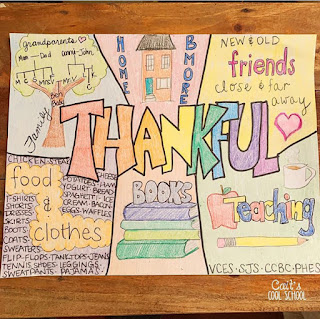 grandparents
Mom Dad
Family
HOME
BMORE
NEW & OLD
friends
close & far
away
THANKFUL
CHICKEN
food
&
clothes
CHEESE
YOGURT BREAD
SPAGHETTI ICE
CREAM BACON
EGGS WAFFLES
T-SHIRTS
SHORTS
DRESSES
SKIRTS
BOOTS
COATS
SWEATERS
FLIP-FLOPS TANKTOPS JEANS
TENNIS SHOES LEGGINGS
SWEATPANTS PAJAMAS
BOOKS
Teaching
VCES SJS CCBC PHES
Cait's
COOL SCHOOL